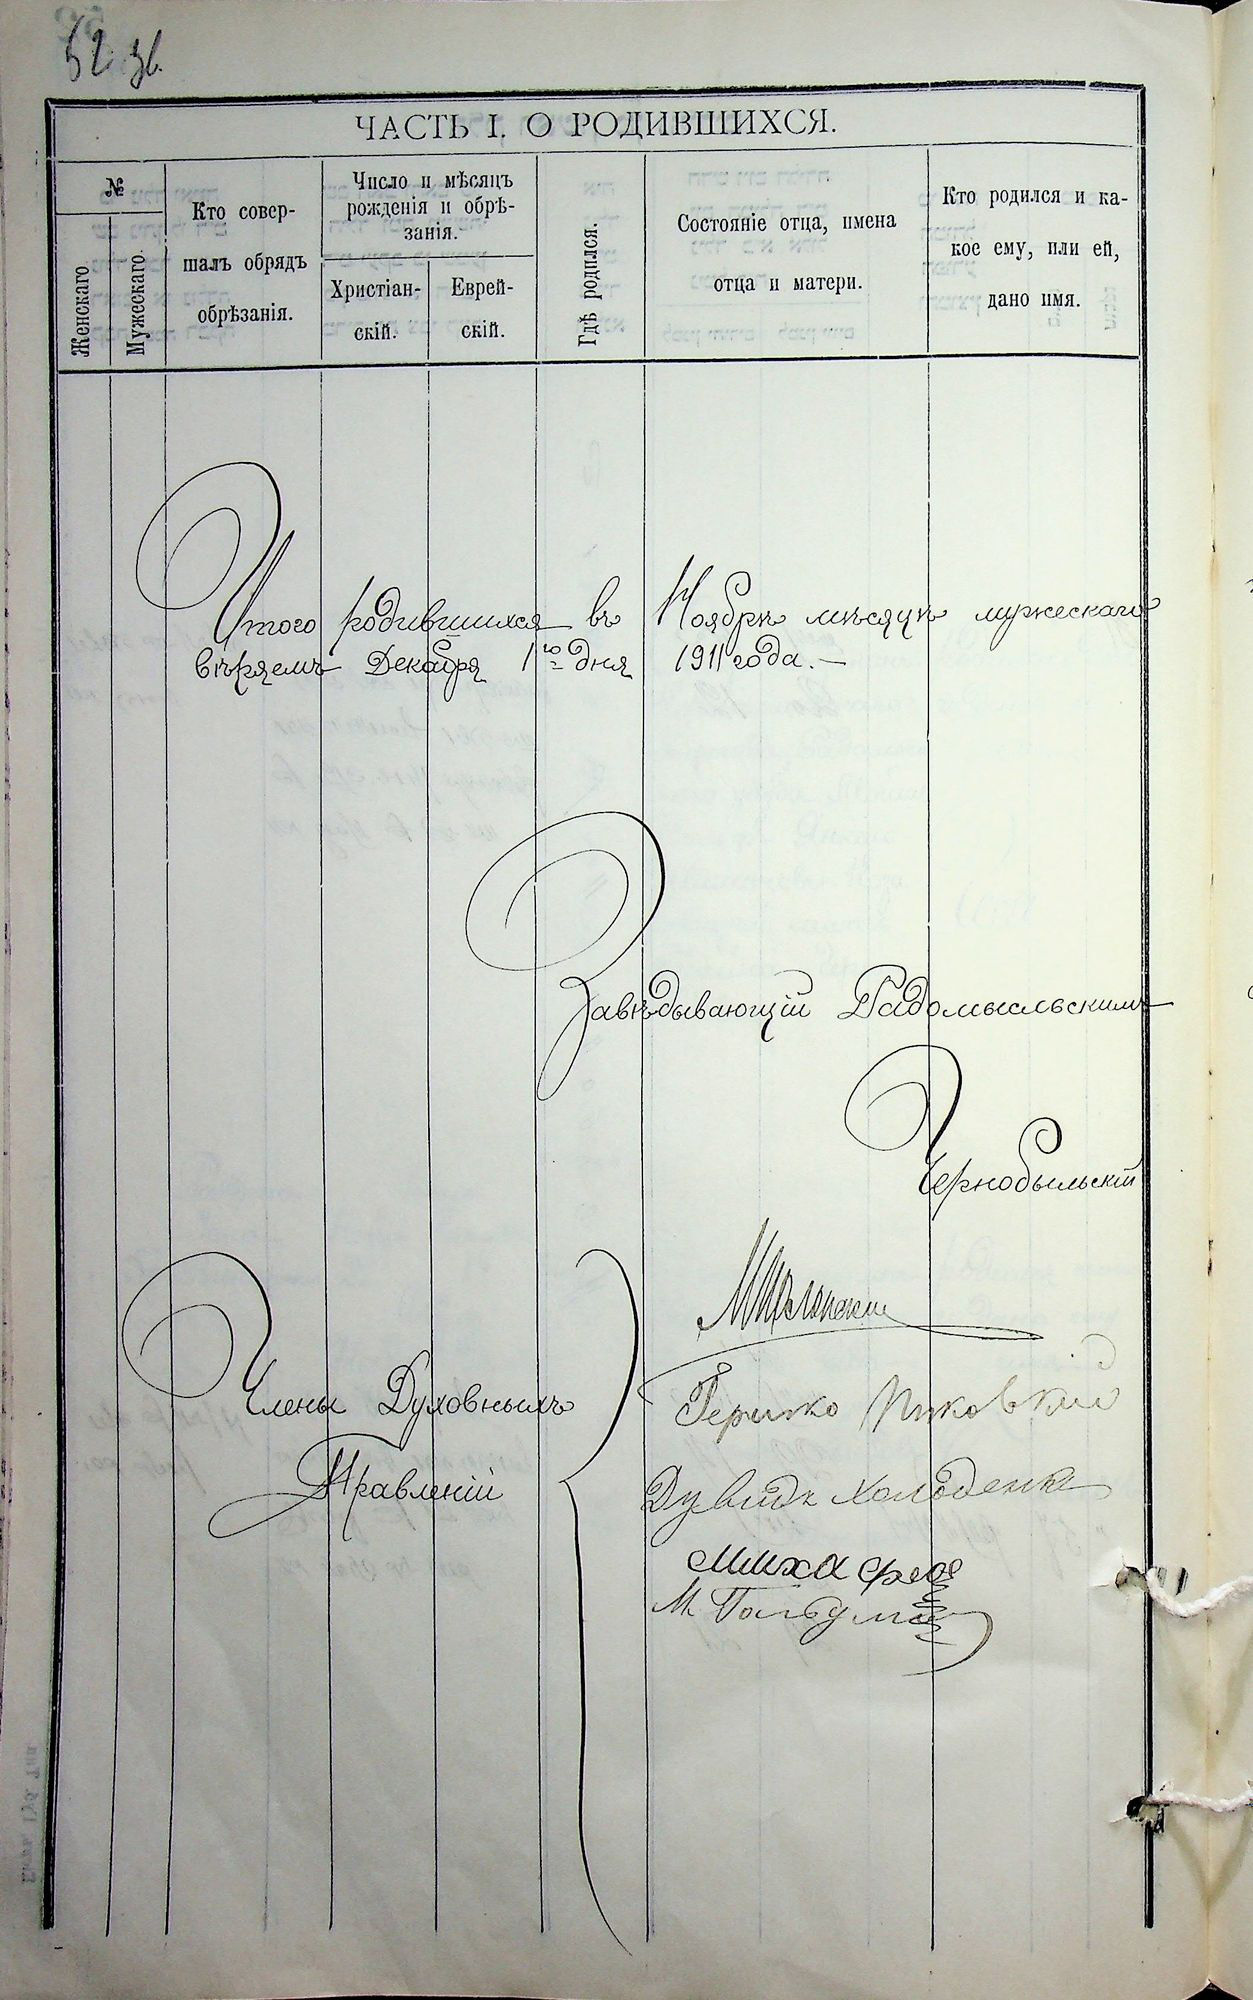 52 зв.
ЧАСТЬ I. О РОДИВШИХСЯ.
№
Женскаго
Мужескаго
Кто совер-
шалъ обрядъ
обрѣзанія.
Число и мѣсяцъ
рожденія и обрѣ-
занія.
Христіан-
скій.
Еврей-
скій.
Гдѣ родился.
Состояніе отца, имена
отца и матери.
Кто родился и ка-
кое ему, или ей,
дано имя.
Итого родившихся въ Ноябрѣ мѣсяцѣ мужескаго
вѣряемъ Декабря 1го дня 1911 года.—
Завѣдывающій Радомысльскимъ
Чернобыльскій
Члены Духовныхъ
Правленій
Гершко
Дувидъ Холоденко
М.